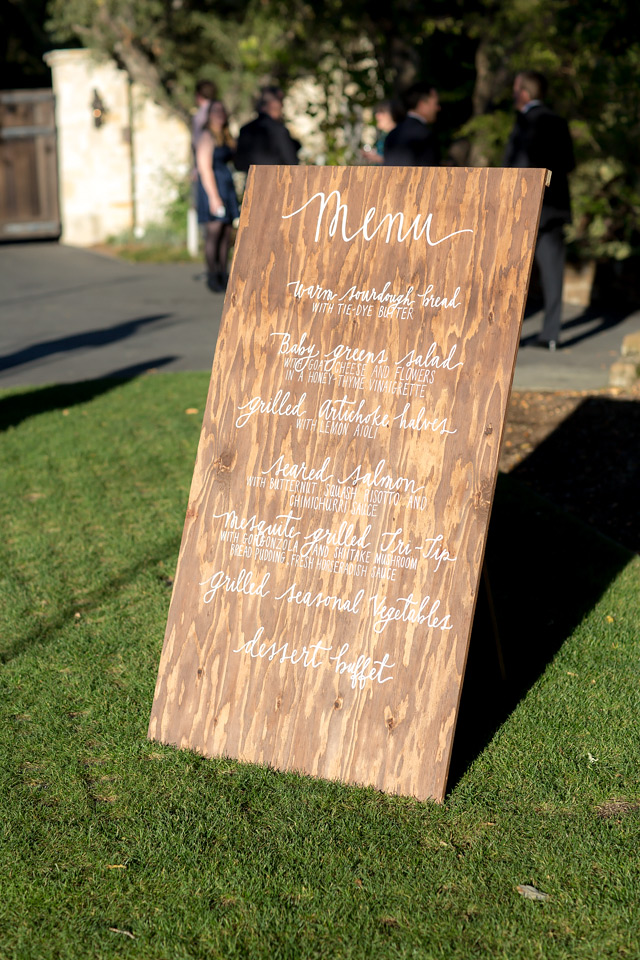 Menu
warm sourdough bread
WITH TIE-DYE BUTTER
Baby greens salad
WITH GOAT CHEESE AND FLOWERS
IN A HONEY-THYME VINAIGRETTE
grilled Artichoke halves
WITH LEMON AIOLI
seared salmon
WITH BUTTERNUT SQUASH RISOTTO AND
CHIMICHURRI SAUCE
Mesquite grilled Tri-Tip
WITH GORGONZOLA AND SHITAKE MUSHROOM
BREAD PUDDING, FRESH HORSERADISH SAUCE
grilled seasonal Vegetables
dessert buffet